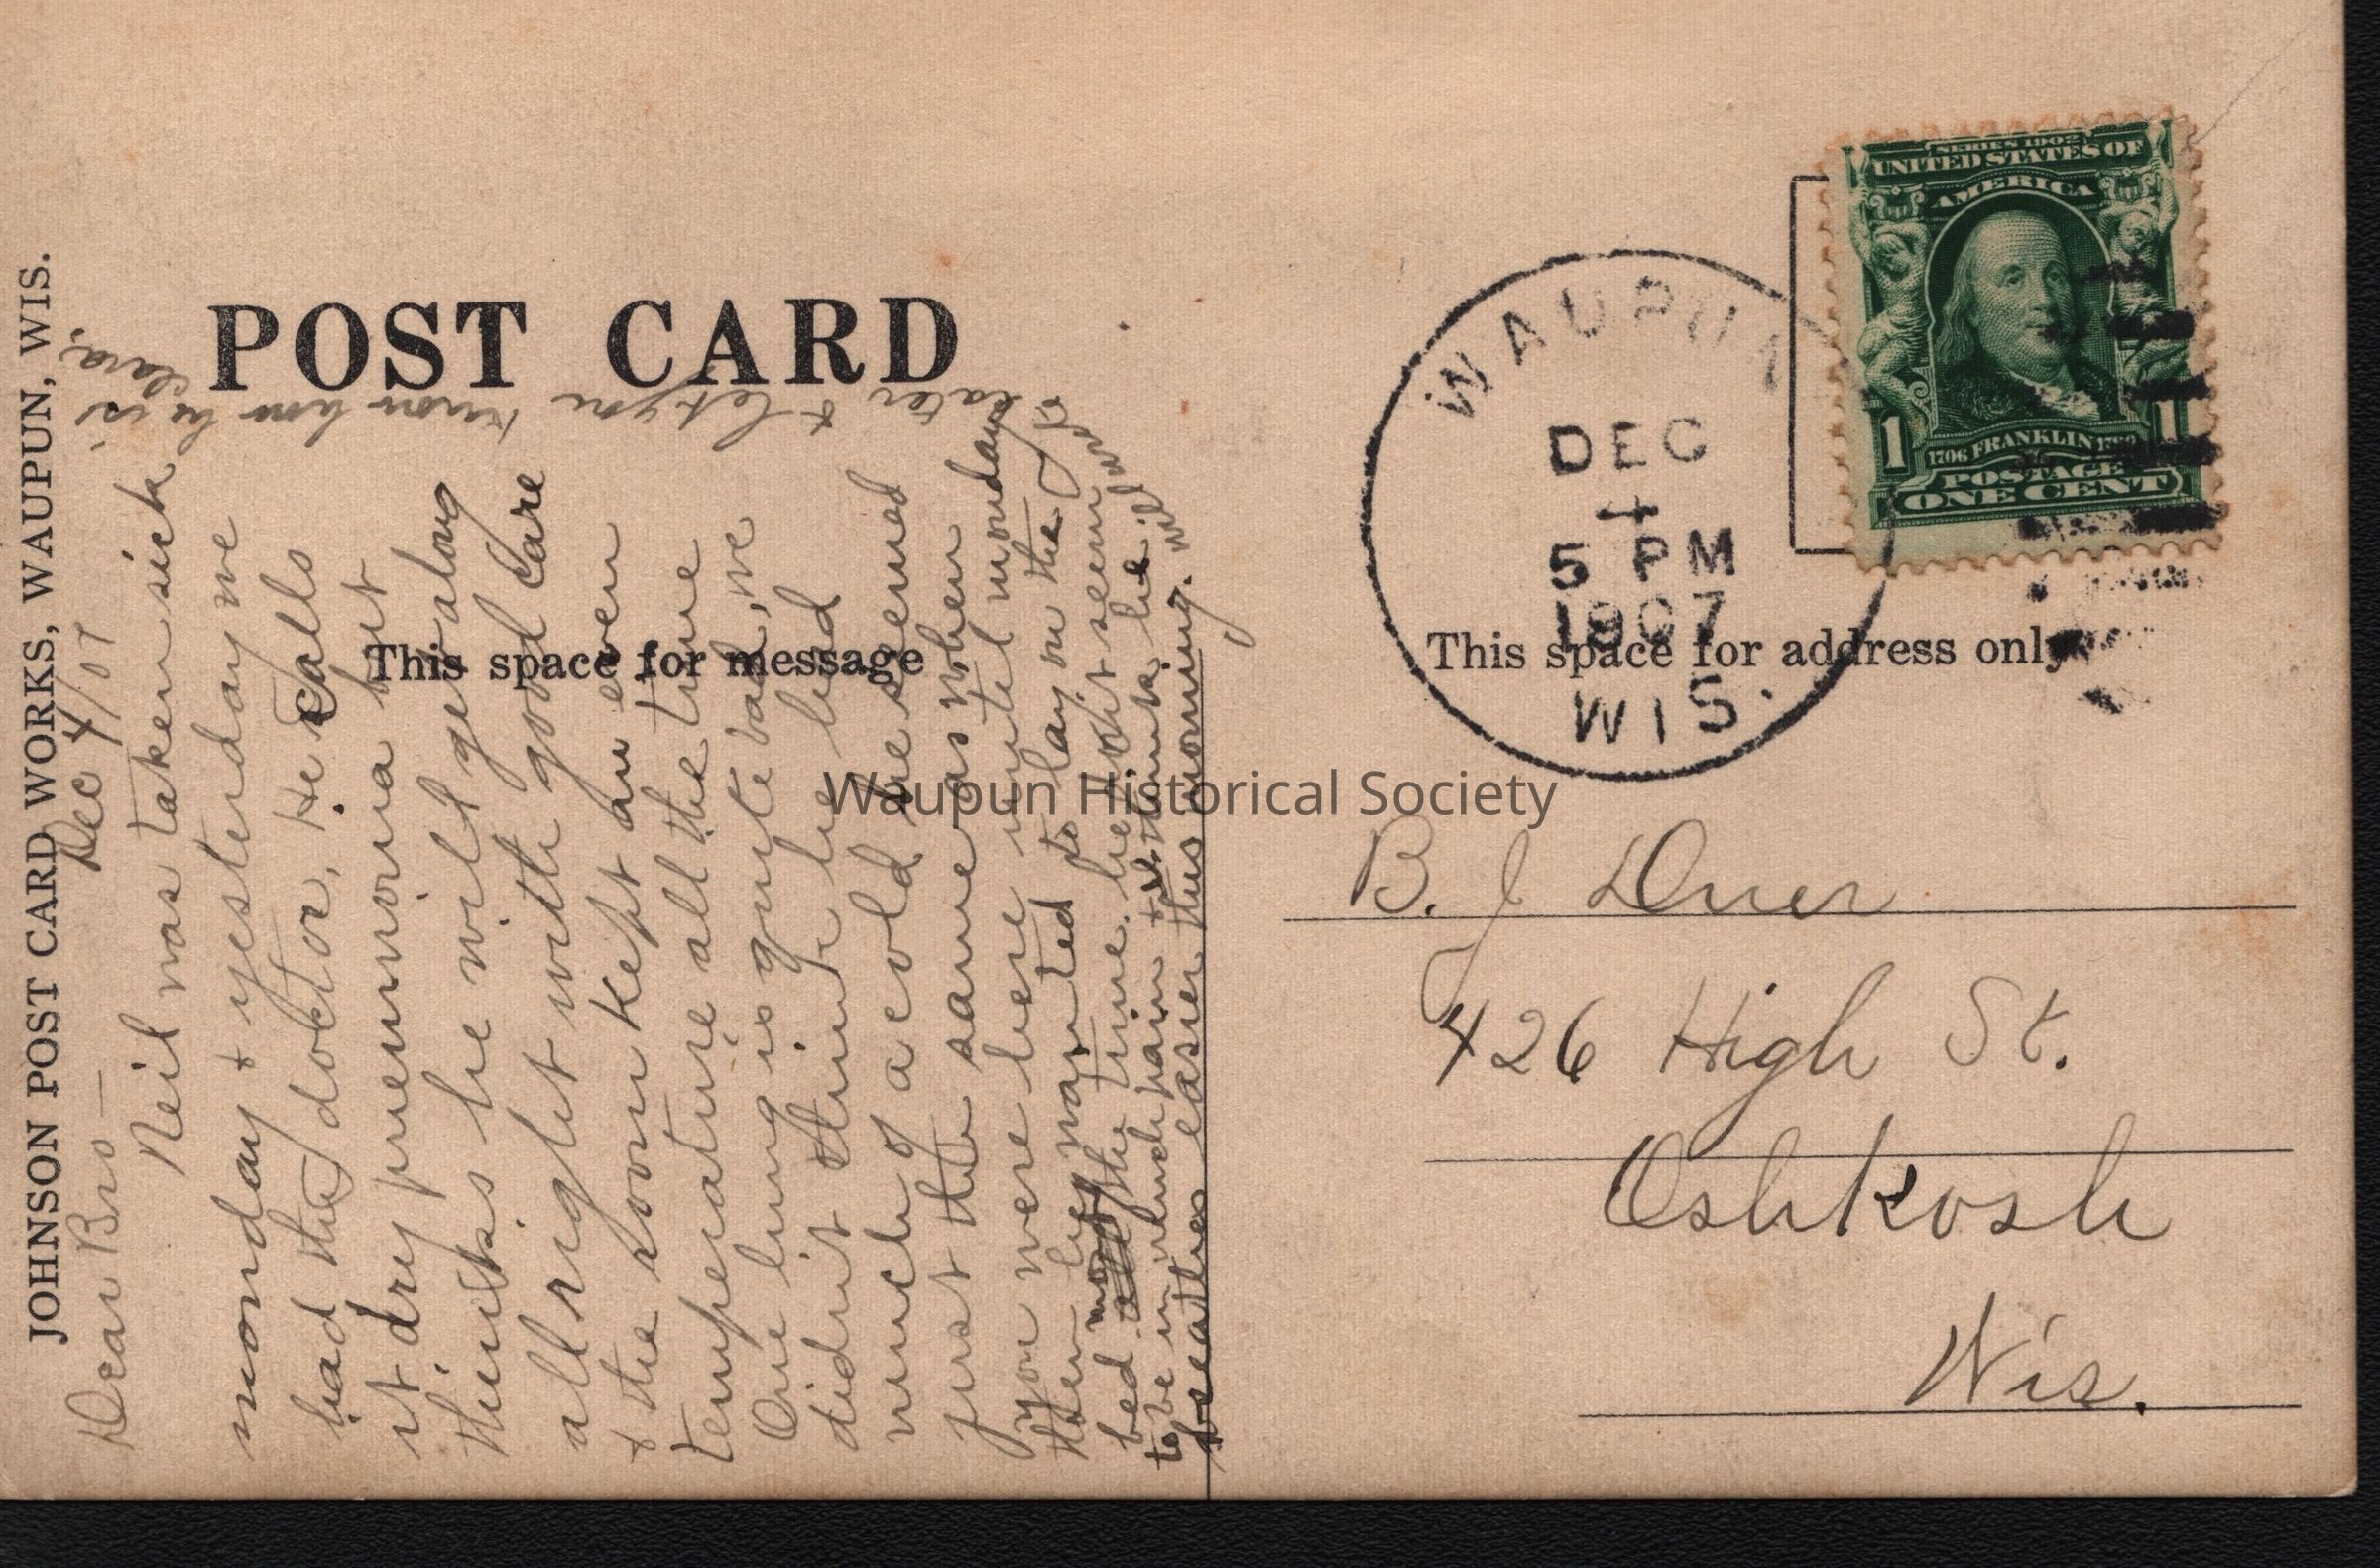 JOHNSON POST CARD WORKS, WAUPUN, WIS.
POST CARD
This space for message
This space for address only
Dec 4/07
Dear Bro —
Neil was taken sick
monday & yesterday we
had the doctor, He calls
it dry pneumonia but
thinks he will get along
all right with good care
& the room kept an even
temperature all the time
One lung is quite bad, we
didnt think he had
much of a cold he seemed
just the same as when
you were here until monday
then he wanted to lay on the
bed most the time. he dont seem
to be in much pain & thinks he
breathes easier this morning.
will
later & let you
know how he is.
Clara.
WAUPUN
DEC
4
5 PM
1907
WIS.
SERIES 1902
UNITED STATES OF
AMERICA
1706 FRANKLIN
POSTAGE
1 ONE CENT 1
B. J
426 High St.
Oshkosh
Wis.
Waupun Historical Society